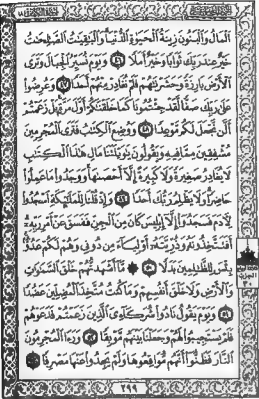 الْمَالُ وَالْبَنُونَ زِينَةُ الْحَيَوٰةِ الدُّنْيَا وَالْبَٰقِيَٰتُ الصَّٰلِحَٰتُ
خَيْرٌ عِندَ رَبِّكَ ثَوَابًا وَخَيْرٌ أَمَلًا ﴿٤٦﴾ وَيَوْمَ نُسَيِّرُ الْجِبَالَ وَتَرَى
الْأَرْضَ بَارِزَةً وَحَشَرْنَٰهُمْ فَلَمْ نُغَادِرْ مِنْهُمْ أَحَدًا ﴿٤٧﴾ وَعُرِضُوا
عَلَىٰ رَبِّكَ صَفًّا لَّقَدْ جِئْتُمُونَا كَمَا خَلَقْنَٰكُمْ أَوَّلَ مَرَّةٍ بَلْ زَعَمْتُمْ
أَلَّن نَّجْعَلَ لَكُم مَّوْعِدًا ﴿٤٨﴾ وَوُضِعَ الْكِتَٰبُ فَتَرَى الْمُجْرِمِينَ
مُشْفِقِينَ مِمَّا فِيهِ وَيَقُولُونَ يَٰوَيْلَتَنَا مَالِ هَٰذَا الْكِتَٰبِ
لَا يُغَادِرُ صَغِيرَةً وَلَا كَبِيرَةً إِلَّا أَحْصَىٰهَا وَوَجَدُوا مَا عَمِلُوا
حَاضِرًا وَلَا يَظْلِمُ رَبُّكَ أَحَدًا ﴿٤٩﴾ وَإِذْ قُلْنَا لِلْمَلَٰئِكَةِ اسْجُدُوا
لِآدَمَ فَسَجَدُوا إِلَّا إِبْلِيسَ كَانَ مِنَ الْجِنِّ فَفَسَقَ عَنْ أَمْرِ رَبِّهِ
أَفَتَتَّخِذُونَهُ وَذُرِّيَّتَهُ أَوْلِيَاءَ مِن دُونِي وَهُمْ لَكُمْ عَدُوٌّ
بِئْسَ لِلظَّٰلِمِينَ بَدَلًا ﴿٥٠﴾ مَّا أَشْهَدتُّهُمْ خَلْقَ السَّمَٰوَٰتِ
وَالْأَرْضِ وَلَا خَلْقَ أَنفُسِهِمْ وَمَا كُنتُ مُتَّخِذَ الْمُضِلِّينَ عَضُدًا
﴿٥١﴾ وَيَوْمَ يَقُولُ نَادُوا شُرَكَاءِيَ الَّذِينَ زَعَمْتُمْ فَدَعَوْهُمْ
فَلَمْ يَسْتَجِيبُوا لَهُمْ وَجَعَلْنَا بَيْنَهُم مَّوْبِقًا ﴿٥٢﴾ وَرَءَا الْمُجْرِمُونَ
النَّارَ فَظَنُّوا أَنَّهُم مُّوَاقِعُوهَا وَلَمْ يَجِدُوا عَنْهَا مَصْرِفًا ﴿٥٣﴾
٢٩٩